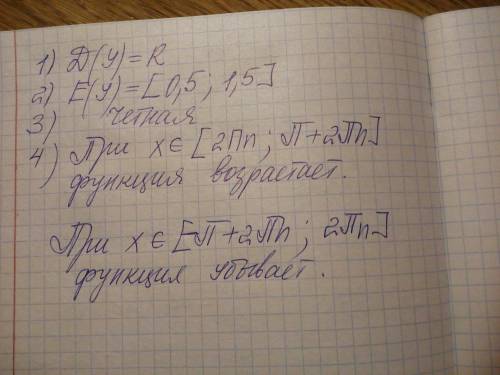 1) D(y)=R
2) E(y)=[0,5; 1,5]
3) четная
4) При x∈[2Пn; П+2Пn]
функция возрастает.
При x∈[-П+2Пn; 2Пn]
функция убывает.